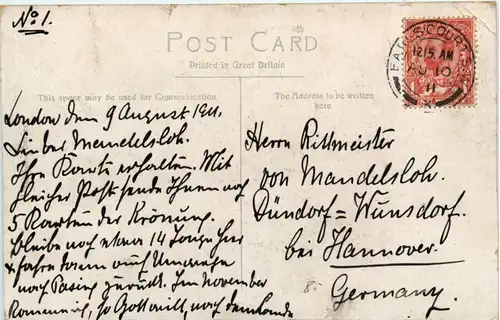 No 1.
POST CARD
Printed in Great Britain
This space may be used for Communication
The Address to be written
here
EARLS COURT S.W.
12.15 AM
AU 10
11
London den 9 August 1911.
Lieber Mandelsloh.
Ihre Karte erhalten. Mit
gleicher Post sende Ihnen noch
5 Karten der Krönung.
Bleibe noch etwa 14 Tage hier
& fahre dann auf Umwegen
nach Pasing zurück. Im November
so Gott will, nach
Herrn Rittmeister
von Mandelsloh.
Dündorf = Wunsdorf.
bei Hannover.
Germany.